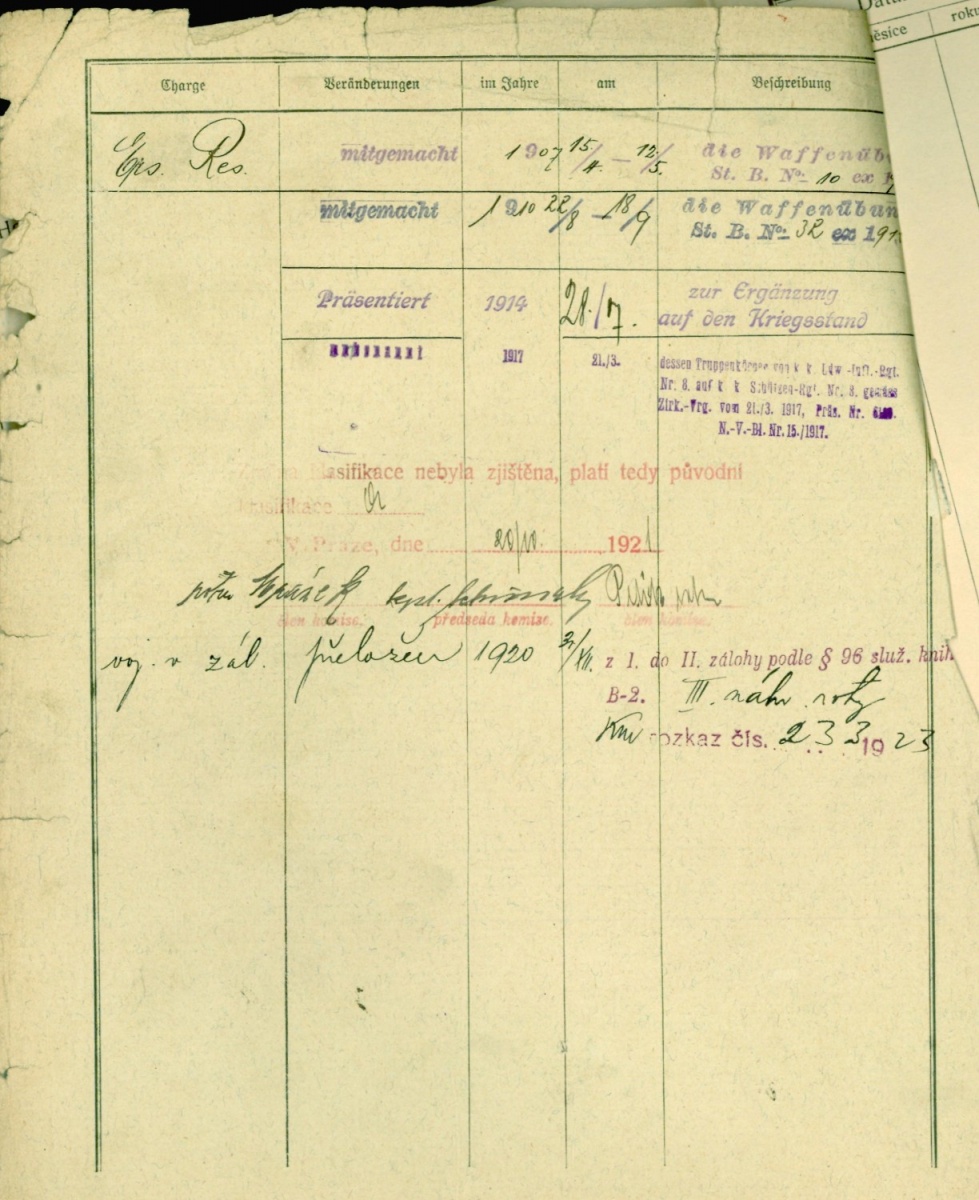 Data
měsíce roku
Charge Veränderungen im Jahre am Beschreibung
Ers. Res. mitgemacht 1907 15/4. – 12/5. die Waffenüb
St. B. No: 10 ex 1
mitgemacht 1910 22/8 – 18/9 die Waffenübun
St. B. No: 32 ex 191
Präsentiert 1914 28./7. zur Ergänzung
auf den Kriegsstand
1917 21./3. dessen Truppenkörper von k. k. Ldw.-Inft.-Rgt.
Nr. 8. auf k. k. Schützen-Rgt. Nr. 8. gemäss
Zirk.-Vrg. vom 21./3. 1917, Präs. Nr.
N.-V.-Bl. Nr. 15./1917.
klasifikace nebyla zjištěna, platí tedy původní
klasifikace
V Praze, dne 20/10. 1921
člen komise. předseda komise. člen komise.
voj. v zál. přeložen 1920 31/XII. z I. do II. zálohy podle § 96 služ. knih
B-2. III. náhr. roty
rozkaz čís. 233 1923